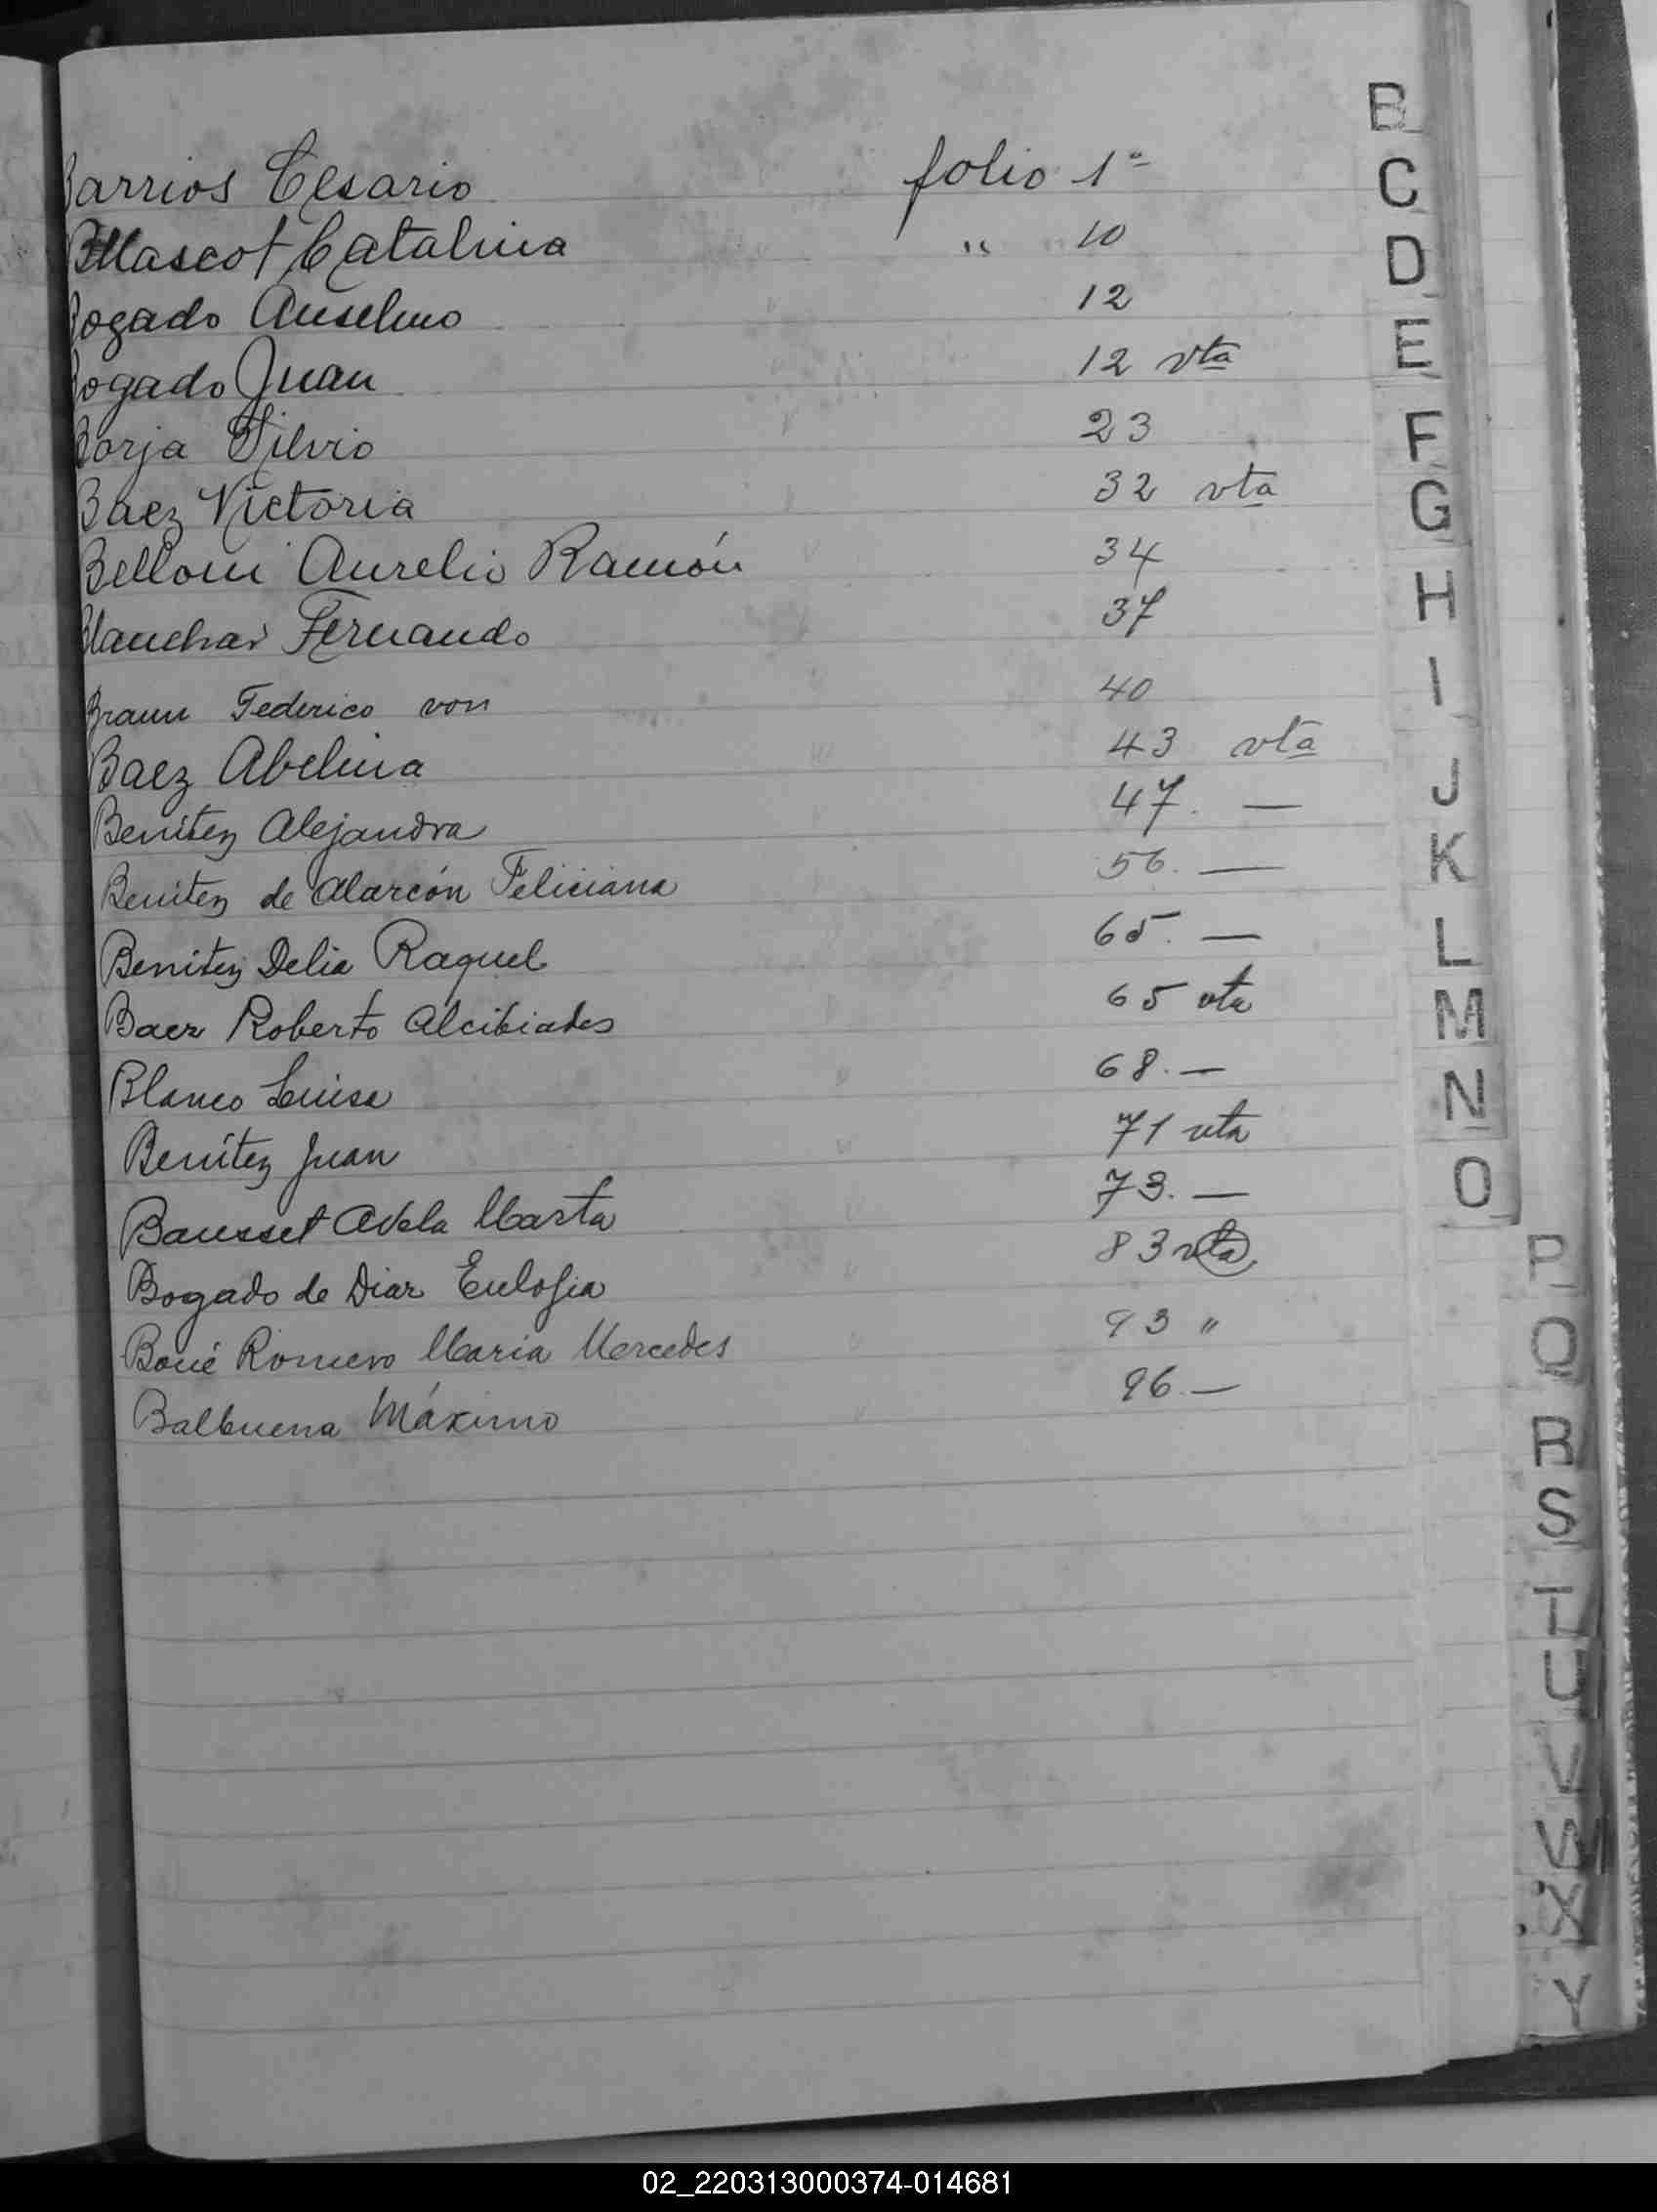 Barrios Cesario folio 1º
Catalina " 10
Bogado Anselmo 12
Bogado Juan 12 vta
Borja Silvio 23
Baez Victoria 32 vta
Belloni Aurelio Ramón 34
Blanchar Fernando 37
Braun Federico von 40
Baez Abelina 43 vta
Benitez Alejandra 47. —
Benitez de Alarcón Feliciana 56. —
Benitez Delia Raquel 65. —
Baez Roberto Alcibiades 65 vta
Blanco Luisa 68. —
Benítez Juan 71 vta
Bausset Adela Marta 73. —
Bogado de Diaz Eulogia 83 vta
Boué Romero Maria Mercedes 93 "
Balbuena Máximo 96. —
B
C
D
E
F
G
H
I
J
K
L
M
N
O
P
Q
R
S
T
U
V
W
X
Y
02_220313000374-014681